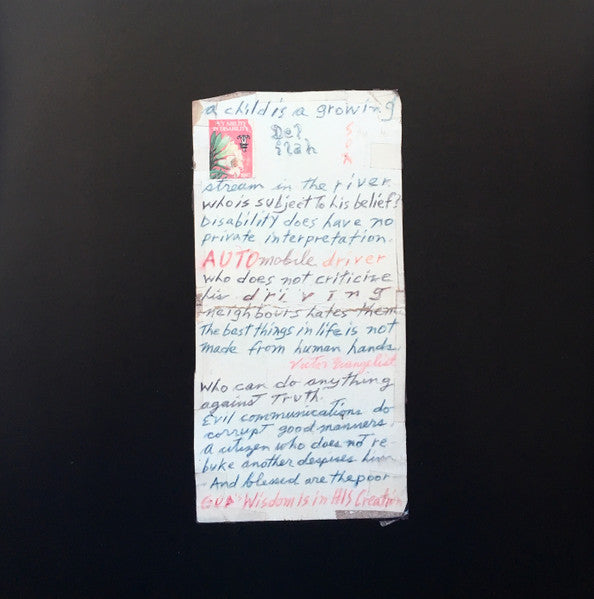 a child is a growing
ABILITY
IN DISABILITY
Del
ilah
stream in the river.
who is subject to his belief?
Disability does have no
private interpretation.
AUTOmobile driver
who does not criticize
his driving
neighbours hates them
The best things in life is not
made from human hands.
Victor Evangelist
Who can do anything
against Truth.
Evil communications do
corrupt good manners.
A citizen who does not re-
buke another despises him
And blessed are the poor
GOD's Wisdom is in HIS Creation